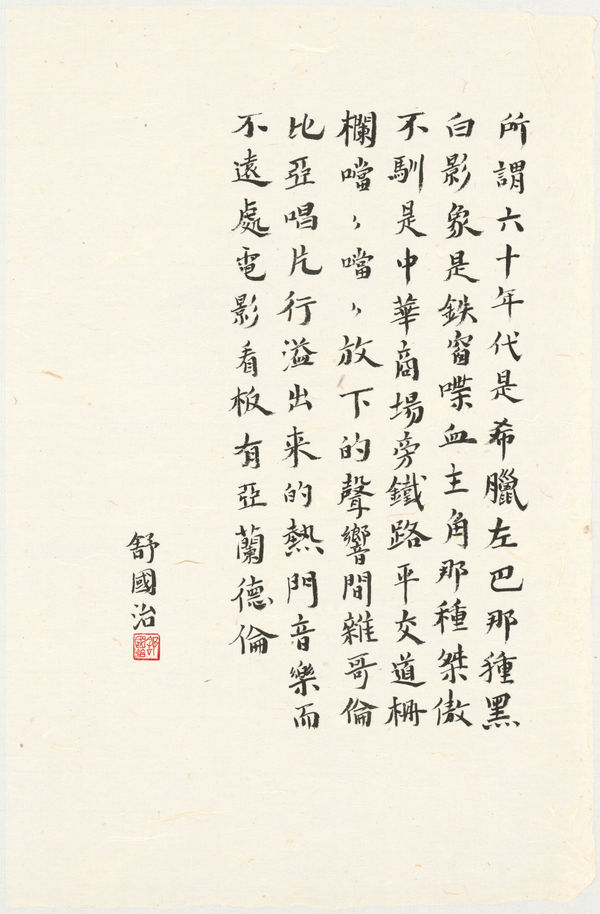 所謂六十年代是希臘左巴那種黑
白影象是鉄窗喋血主角那種桀傲
不馴是中華商場旁鐵路平交道柵
欄噹〻噹〻放下的聲響間雜哥倫
比亞唱片行溢出来的熱門音樂而
不遠處電影看板有亞蘭德倫
舒國治